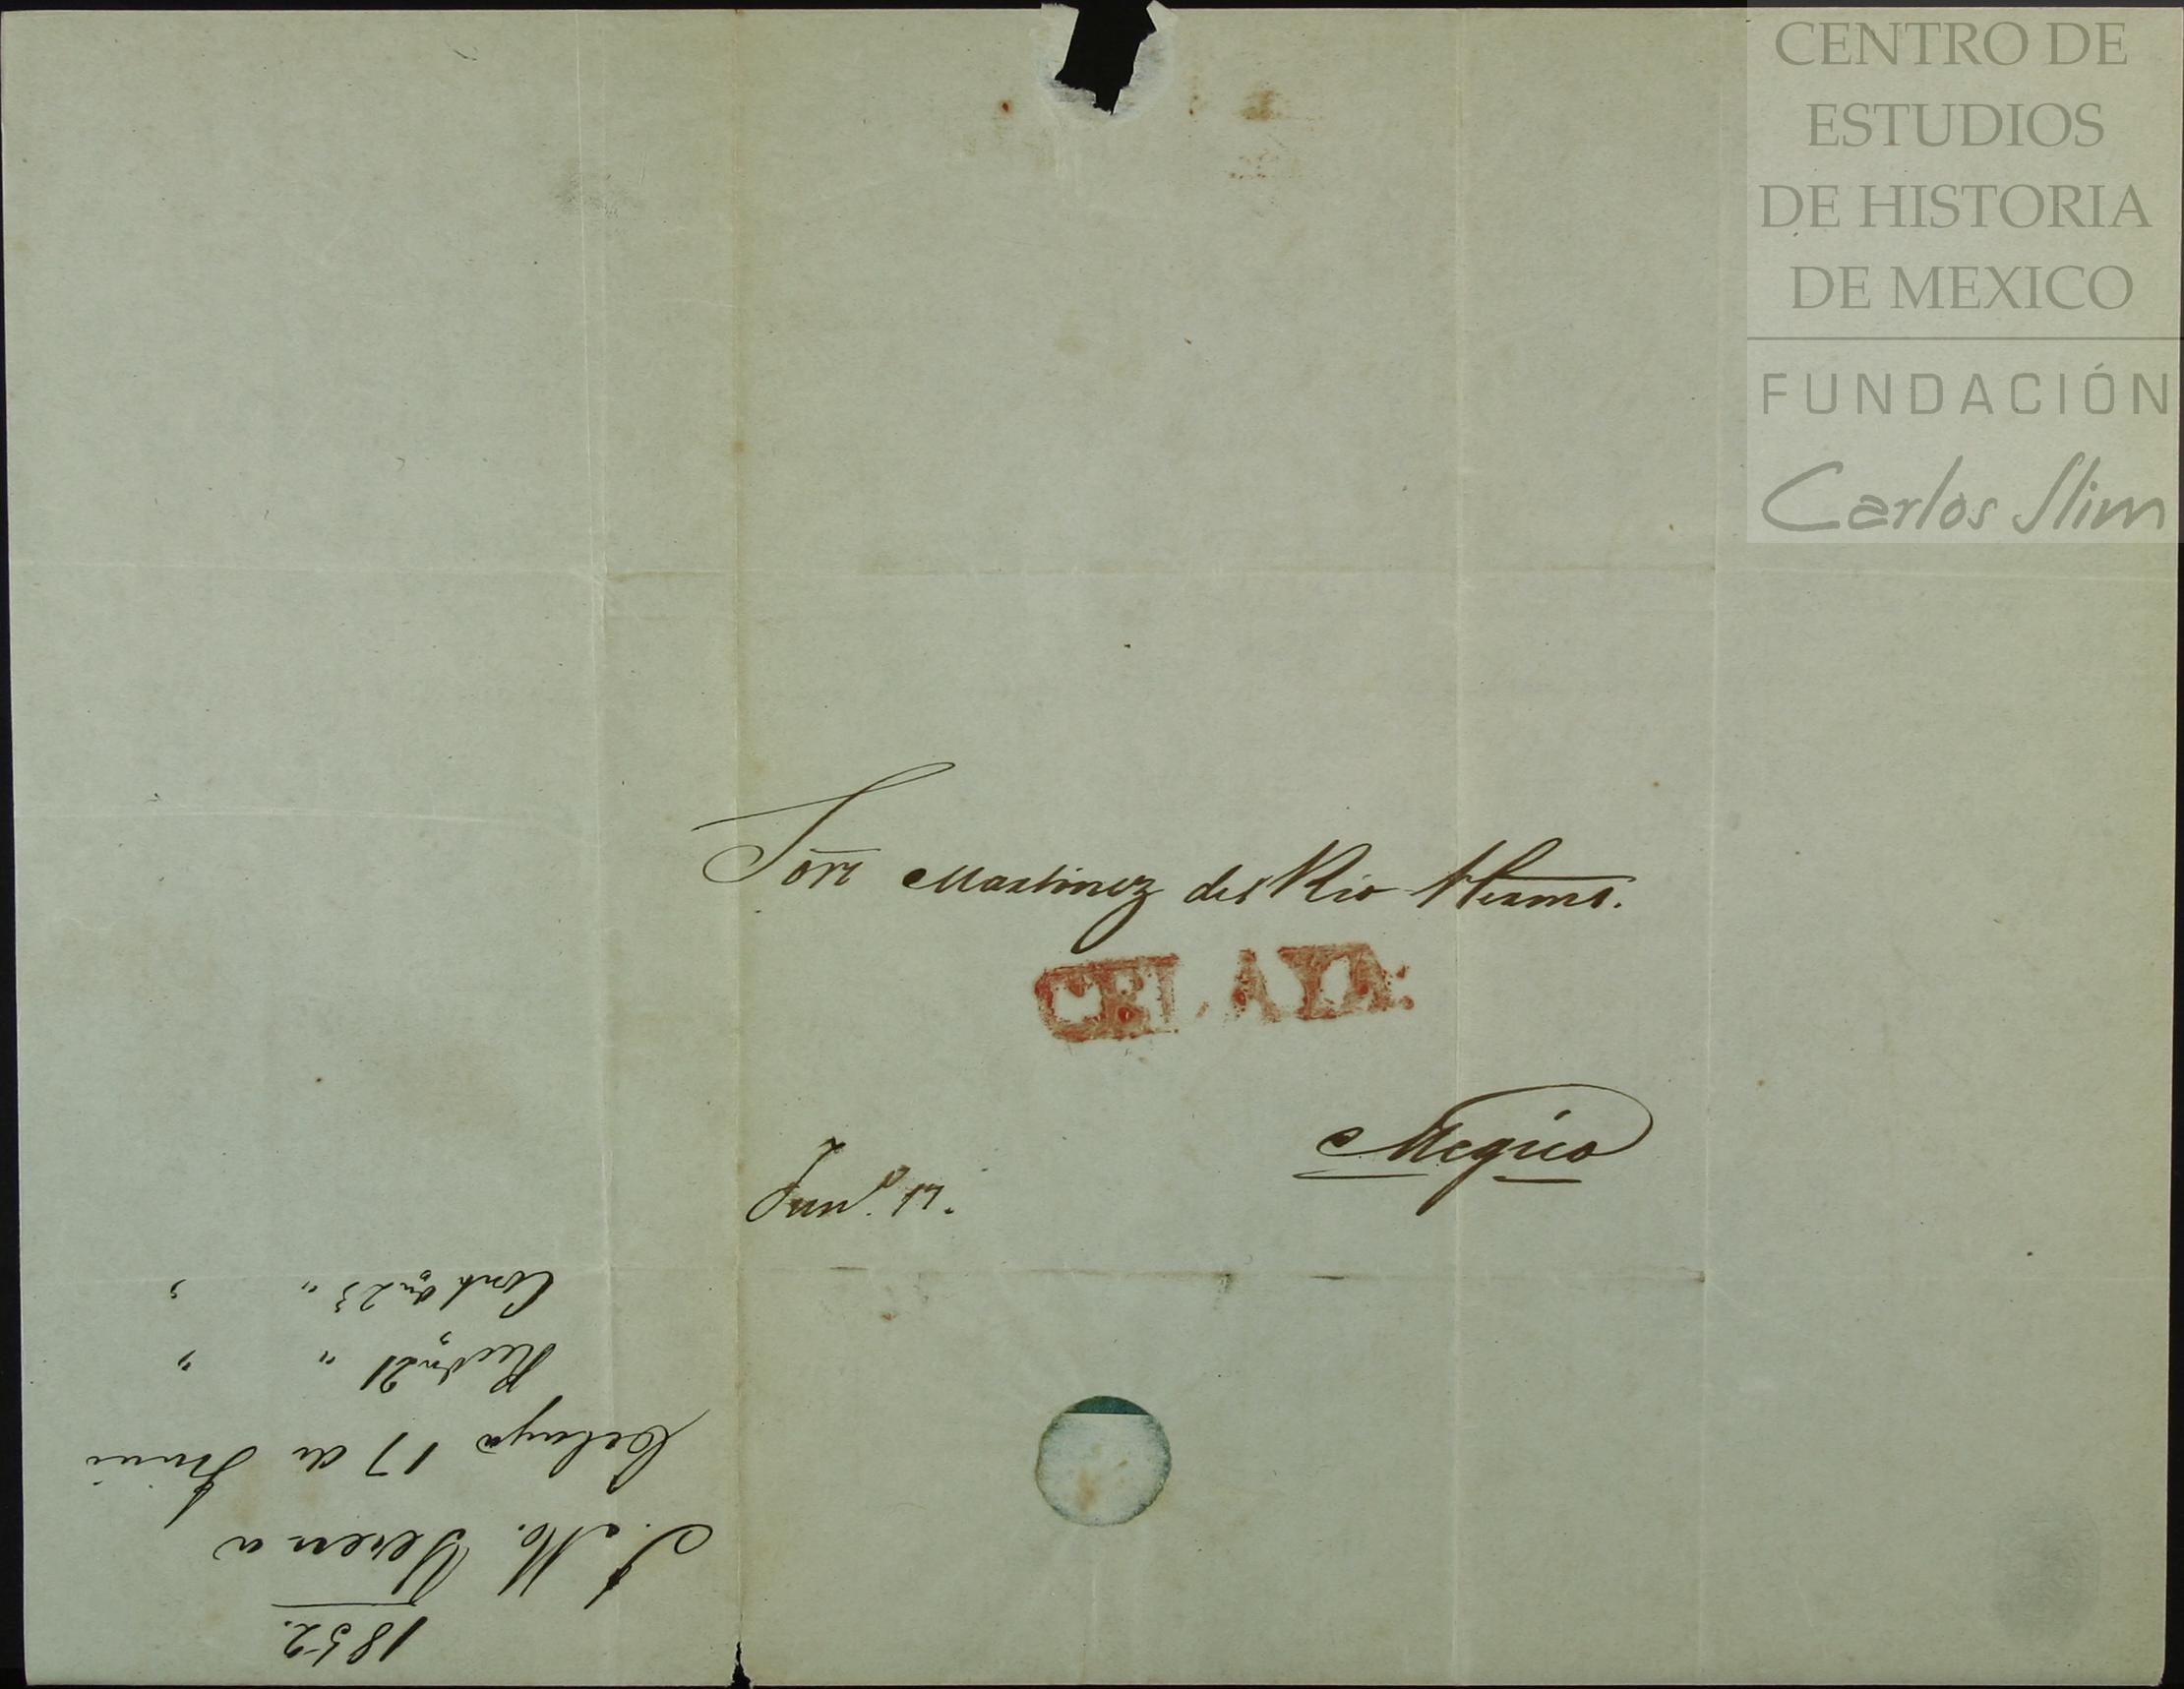 CENTRO DE
ESTUDIOS
DE HISTORIA
DE MEXICO
FUNDACIÓN
Carlos Slim
Martinez del Rio Herms.
CELAYA
Megico
Jun.º 17.
1852.
J. M.
Celaya 17 de Junio
21 " "
23 " "